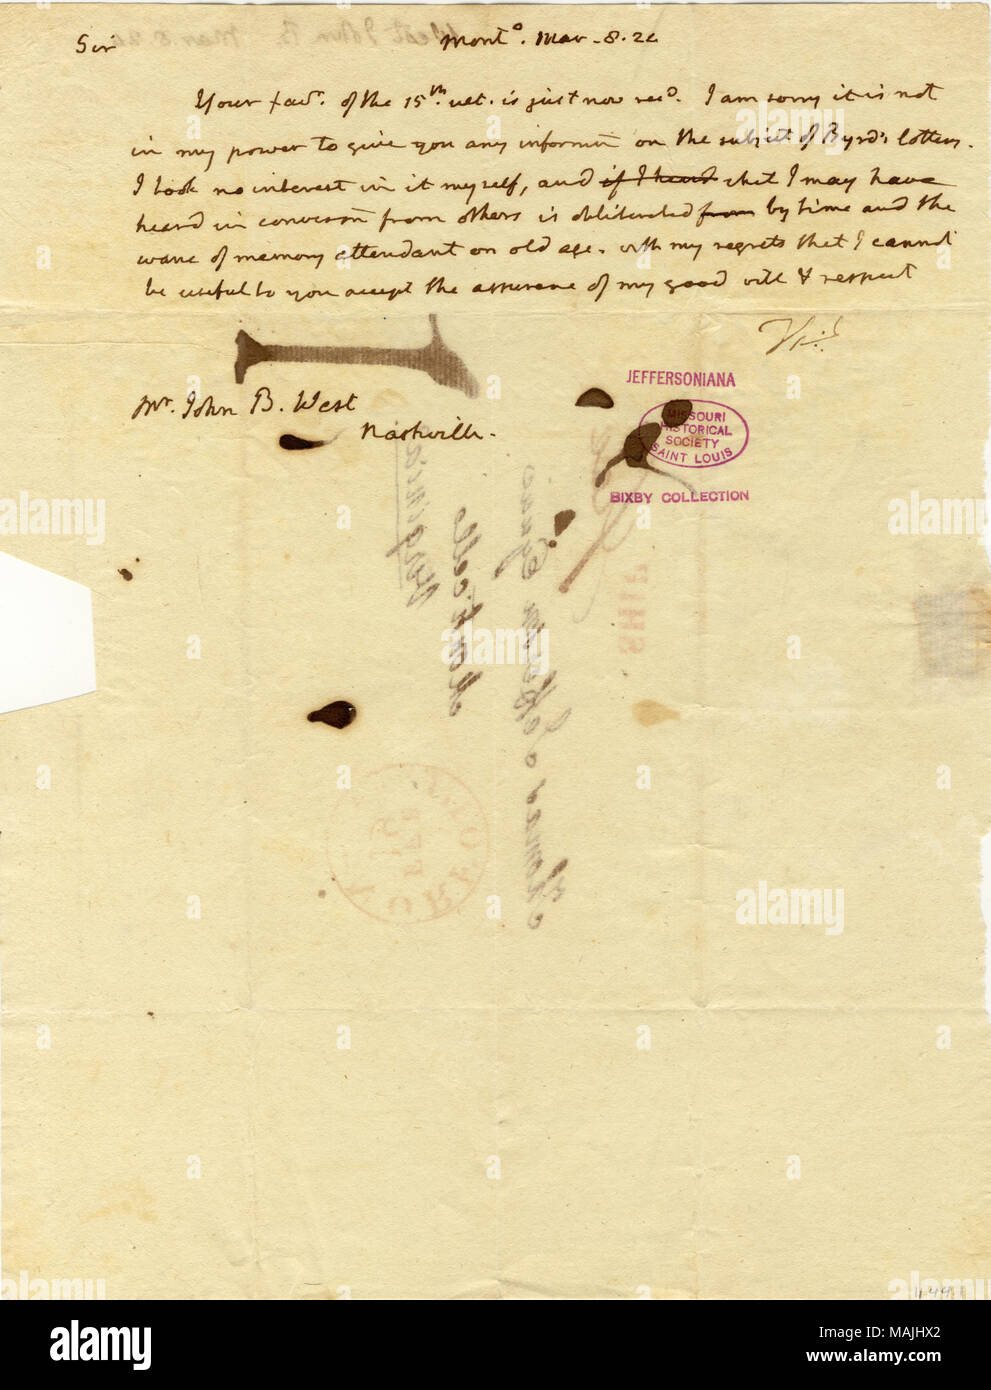 Sir Mont.o Mar. 8. 24
Your favr. of the 15th. ult. is just now recd. I am sorry it is not
in my power to give you any informn on the subject of Byrd's lottery.
I took no interest in it myself, and if I heard what I may have
heard in conversn from others is obliterated from by time and the
wane of memory attendant on old age. with my regrets that I cannot
be useful to you accept the assurance of my good will & respect
Th:J.
Mr. John B. West
Nashville.
JEFFERSONIANA
MISSOURI
HISTORICAL
SOCIETY
SAINT LOUIS
BIXBY COLLECTION
SHIP
Thomas Jefferson Esquire
Monticello
Virginia
West John B. Mar. 8. 24
alamy
Image ID: MAJHX2
www.alamy.com